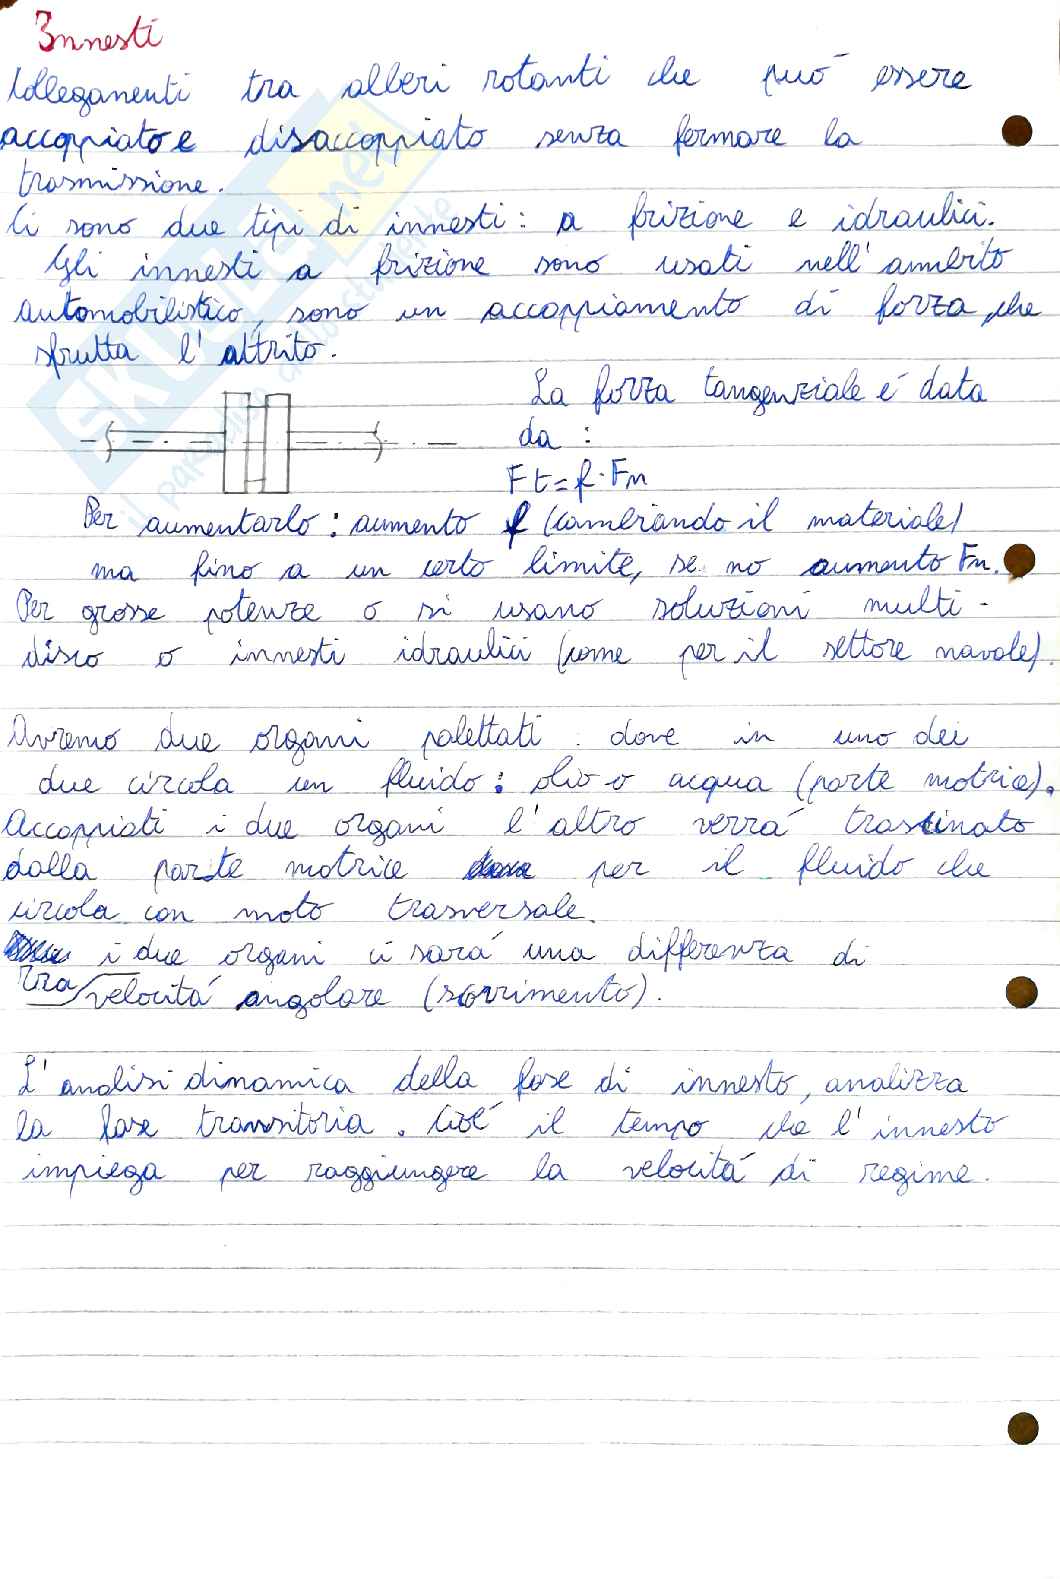 Innesti
Collegamenti tra alberi rotanti che può essere
accoppiato e disaccoppiato senza fermare la
trasmissione.
Ci sono due tipi di innesti: a frizione e idraulici.
Gli innesti a frizione sono usati nell'ambito
automobilistico, sono un accoppiamento di forza, che
sfrutta l'attrito.
La forza tangenziale é data
da :
Ft = f · Fn
Per aumentarlo : aumento f (cambiando il materiale)
ma fino a un certo limite, se no aumento Fn.
Per grosse potenze o si usano soluzioni multi-
disco o innesti idraulici (come per il settore navale).
Avremo due organi palettati dove in uno dei
due circola un fluido : olio o acqua (parte motrice).
Accoppiati i due organi l'altro verrá trascinato
dalla parte motrice per il fluido che
circola con moto trasversale.
tra i due organi ci sará una differenza di
velocitá angolare (scorrimento).
L'analisi dinamica della fase di innesto, analizza
la fase transitoria. Cioé il tempo che l'innesto
impiega per raggiungere la velocitá di regime.
SKUOLA.net
il paradiso dello studente